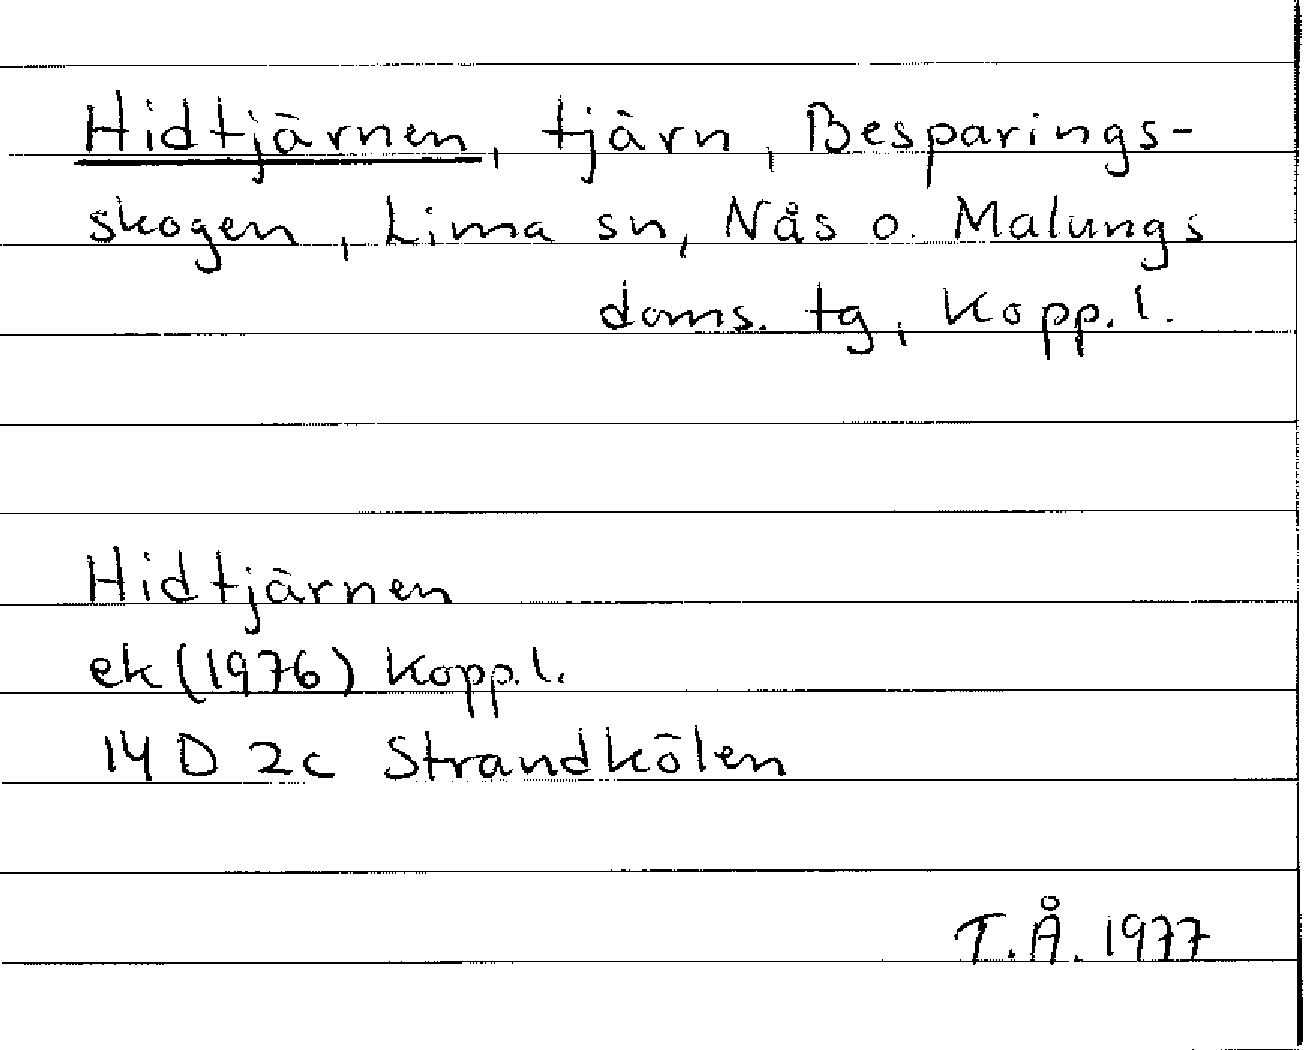 Hidtjärnen, tjärn, Besparings-
skogen, Lima sn, Nås o. Malungs
doms. tg, Kopp. l.
Hidtjärnen
ek (1976) Kopp. l.
14 D 2c Strandkölen
T. Å. 1977